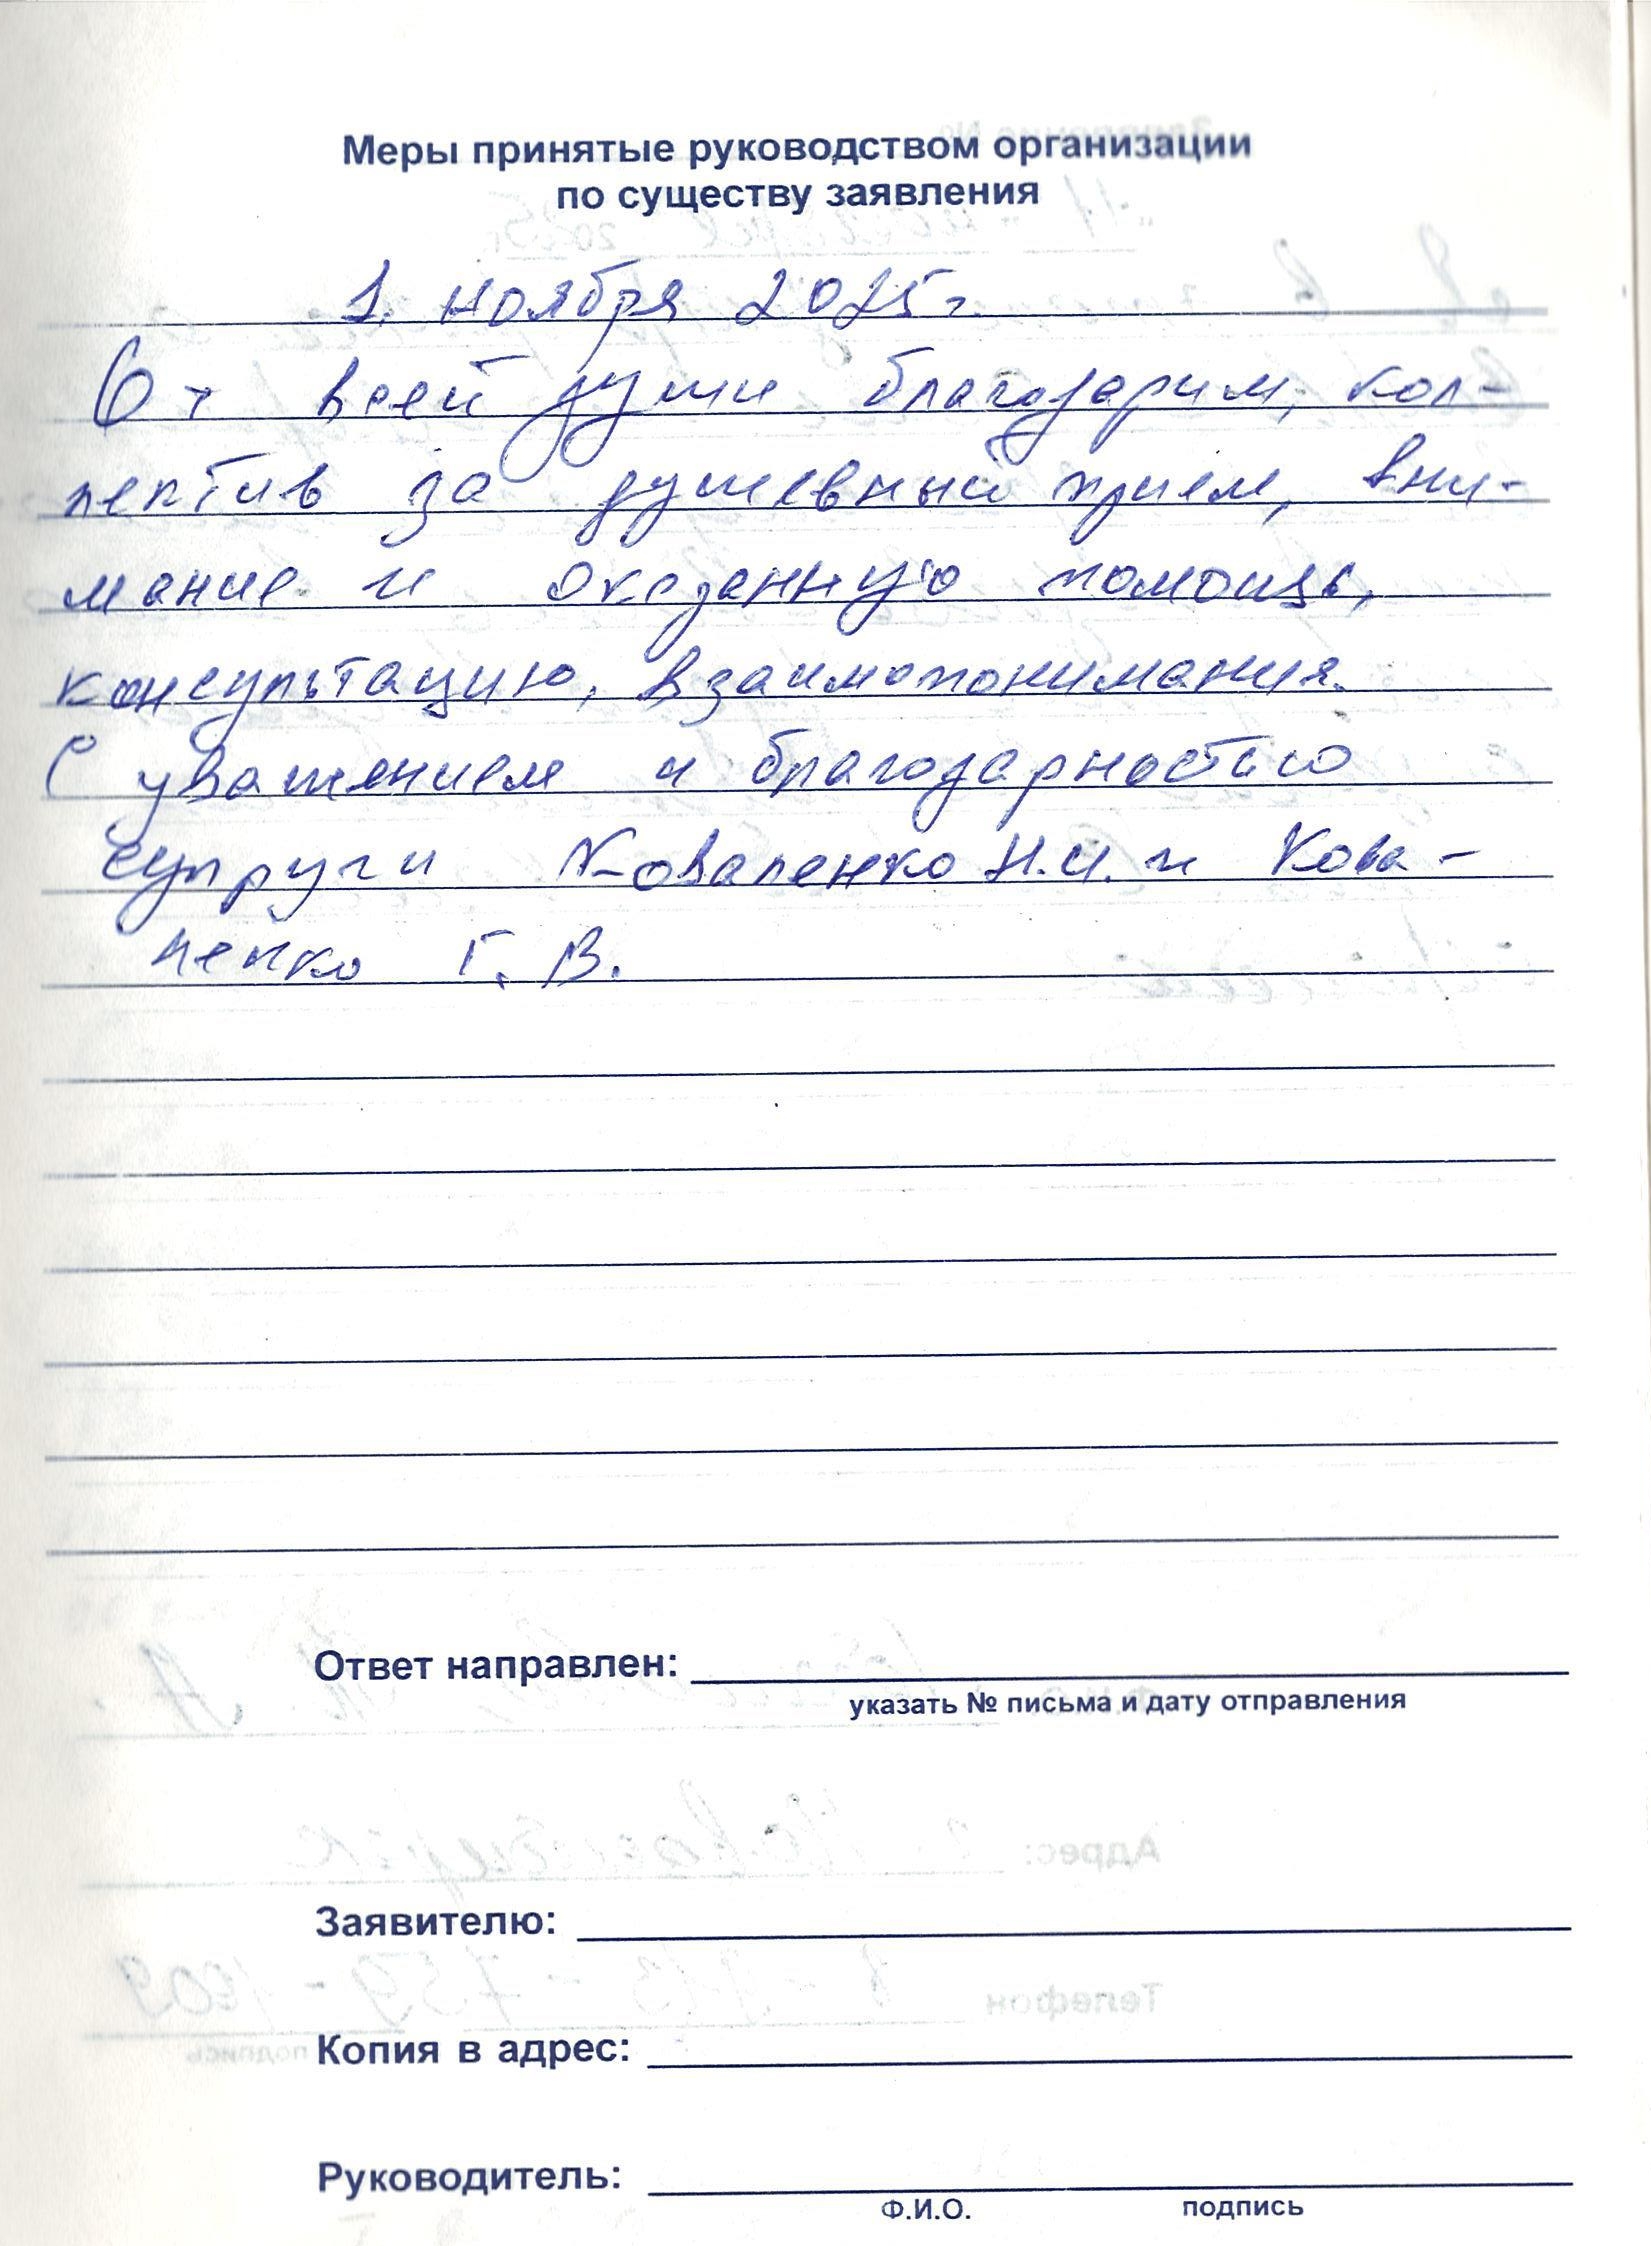 Меры принятые руководством организации
по существу заявления
1. ноября 2025 г.
От всей души благодарим, кол-
лектив за душевный прием, вни-
мание и оказанную помощь,
консультацию, взаимопонимания.
С уважением и благодарностью
супруги Коваленко Н.И. и Кова-
ленко Г. В.
Ответ направлен:
указать № письма и дату отправления
Адрес:
Заявителю:
Телефон
подпись
Копия в адрес:
Руководитель:
Ф.И.О. подпись